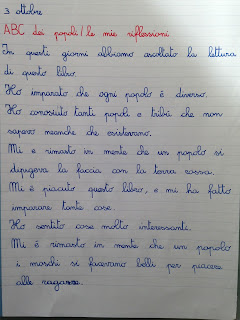 3 ottobre
ABC dei popoli/le mie riflessioni
In questi giorni abbiamo ascoltato la lettura
di questo libro.
Ho imparato che ogni popolo è diverso.
Ho conosciuto tanti popoli e tribù che non
sapevo neanche che esistevano.
Mi è rimasto in mente che un popolo si
dipigeva la faccia con la terra rossa.
Mi è piaciuto questo libro, e mi ha fatto
imparare tante cose.
Ho sentito cose molto interessanti.
Mi è rimasto in mente che un popolo
i maschi si facevano belli per piacere
alle ragazze.